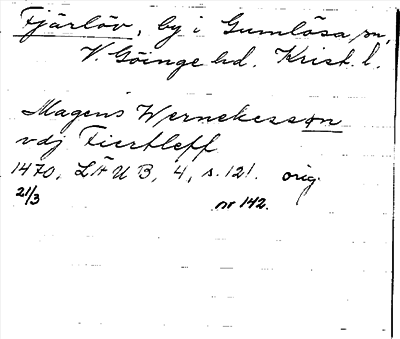 Fjärlöv, by i Gumlösa sn,
V. Göinge hd. Krist. l.
Magens Wernekesson
vdj Fiertleff
1470, LÄUB, 4, s. 121. orig.
21/3 nr 142.